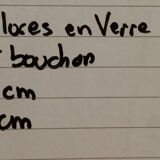 loses en Verre
bouchon
cm
cm